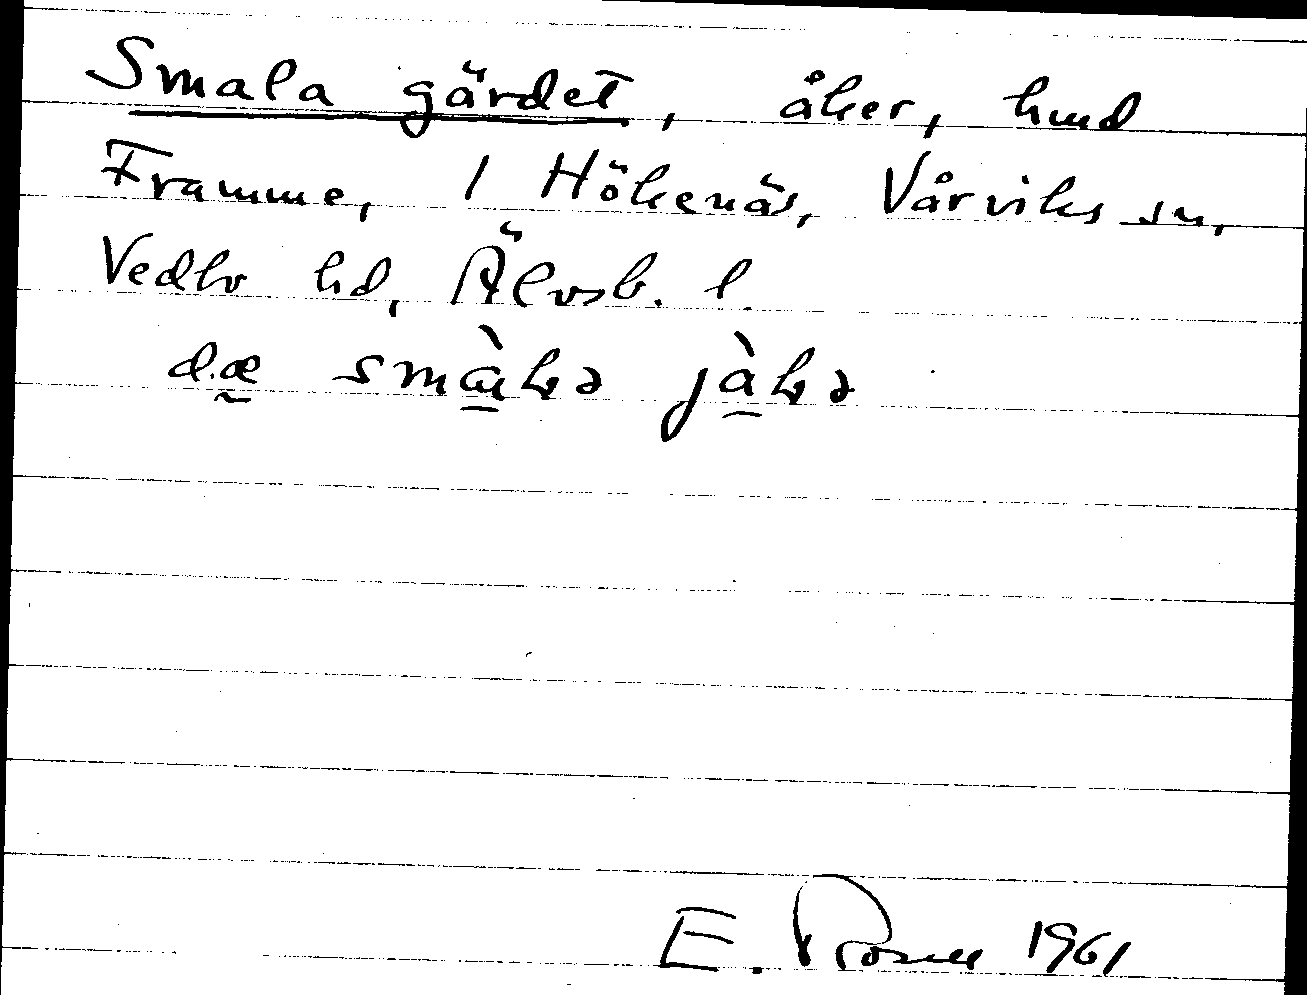 Smala gärdet, åker, hmd
Framme, 1 Hökenäs, Vårviks sn,
Vedbo hd, Älvsb. l.
dæ
E. Rosell 1961